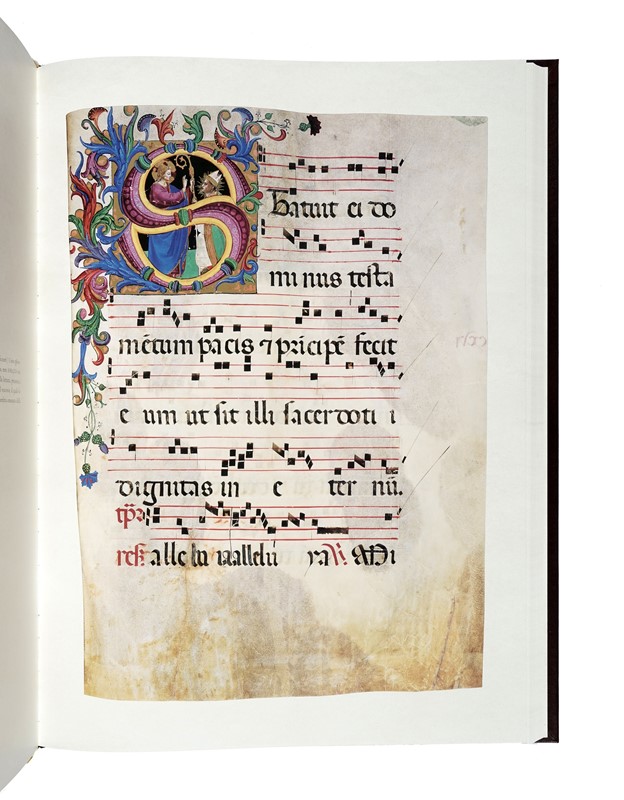 Statuit ei do
mi nus testa
mētum pacis ⁊ pricipē fecit
e um ut sit illi sacerdoti i
dignitas in e ter nū.
tp̄r
resur alle lu iaallelu ya V Mi